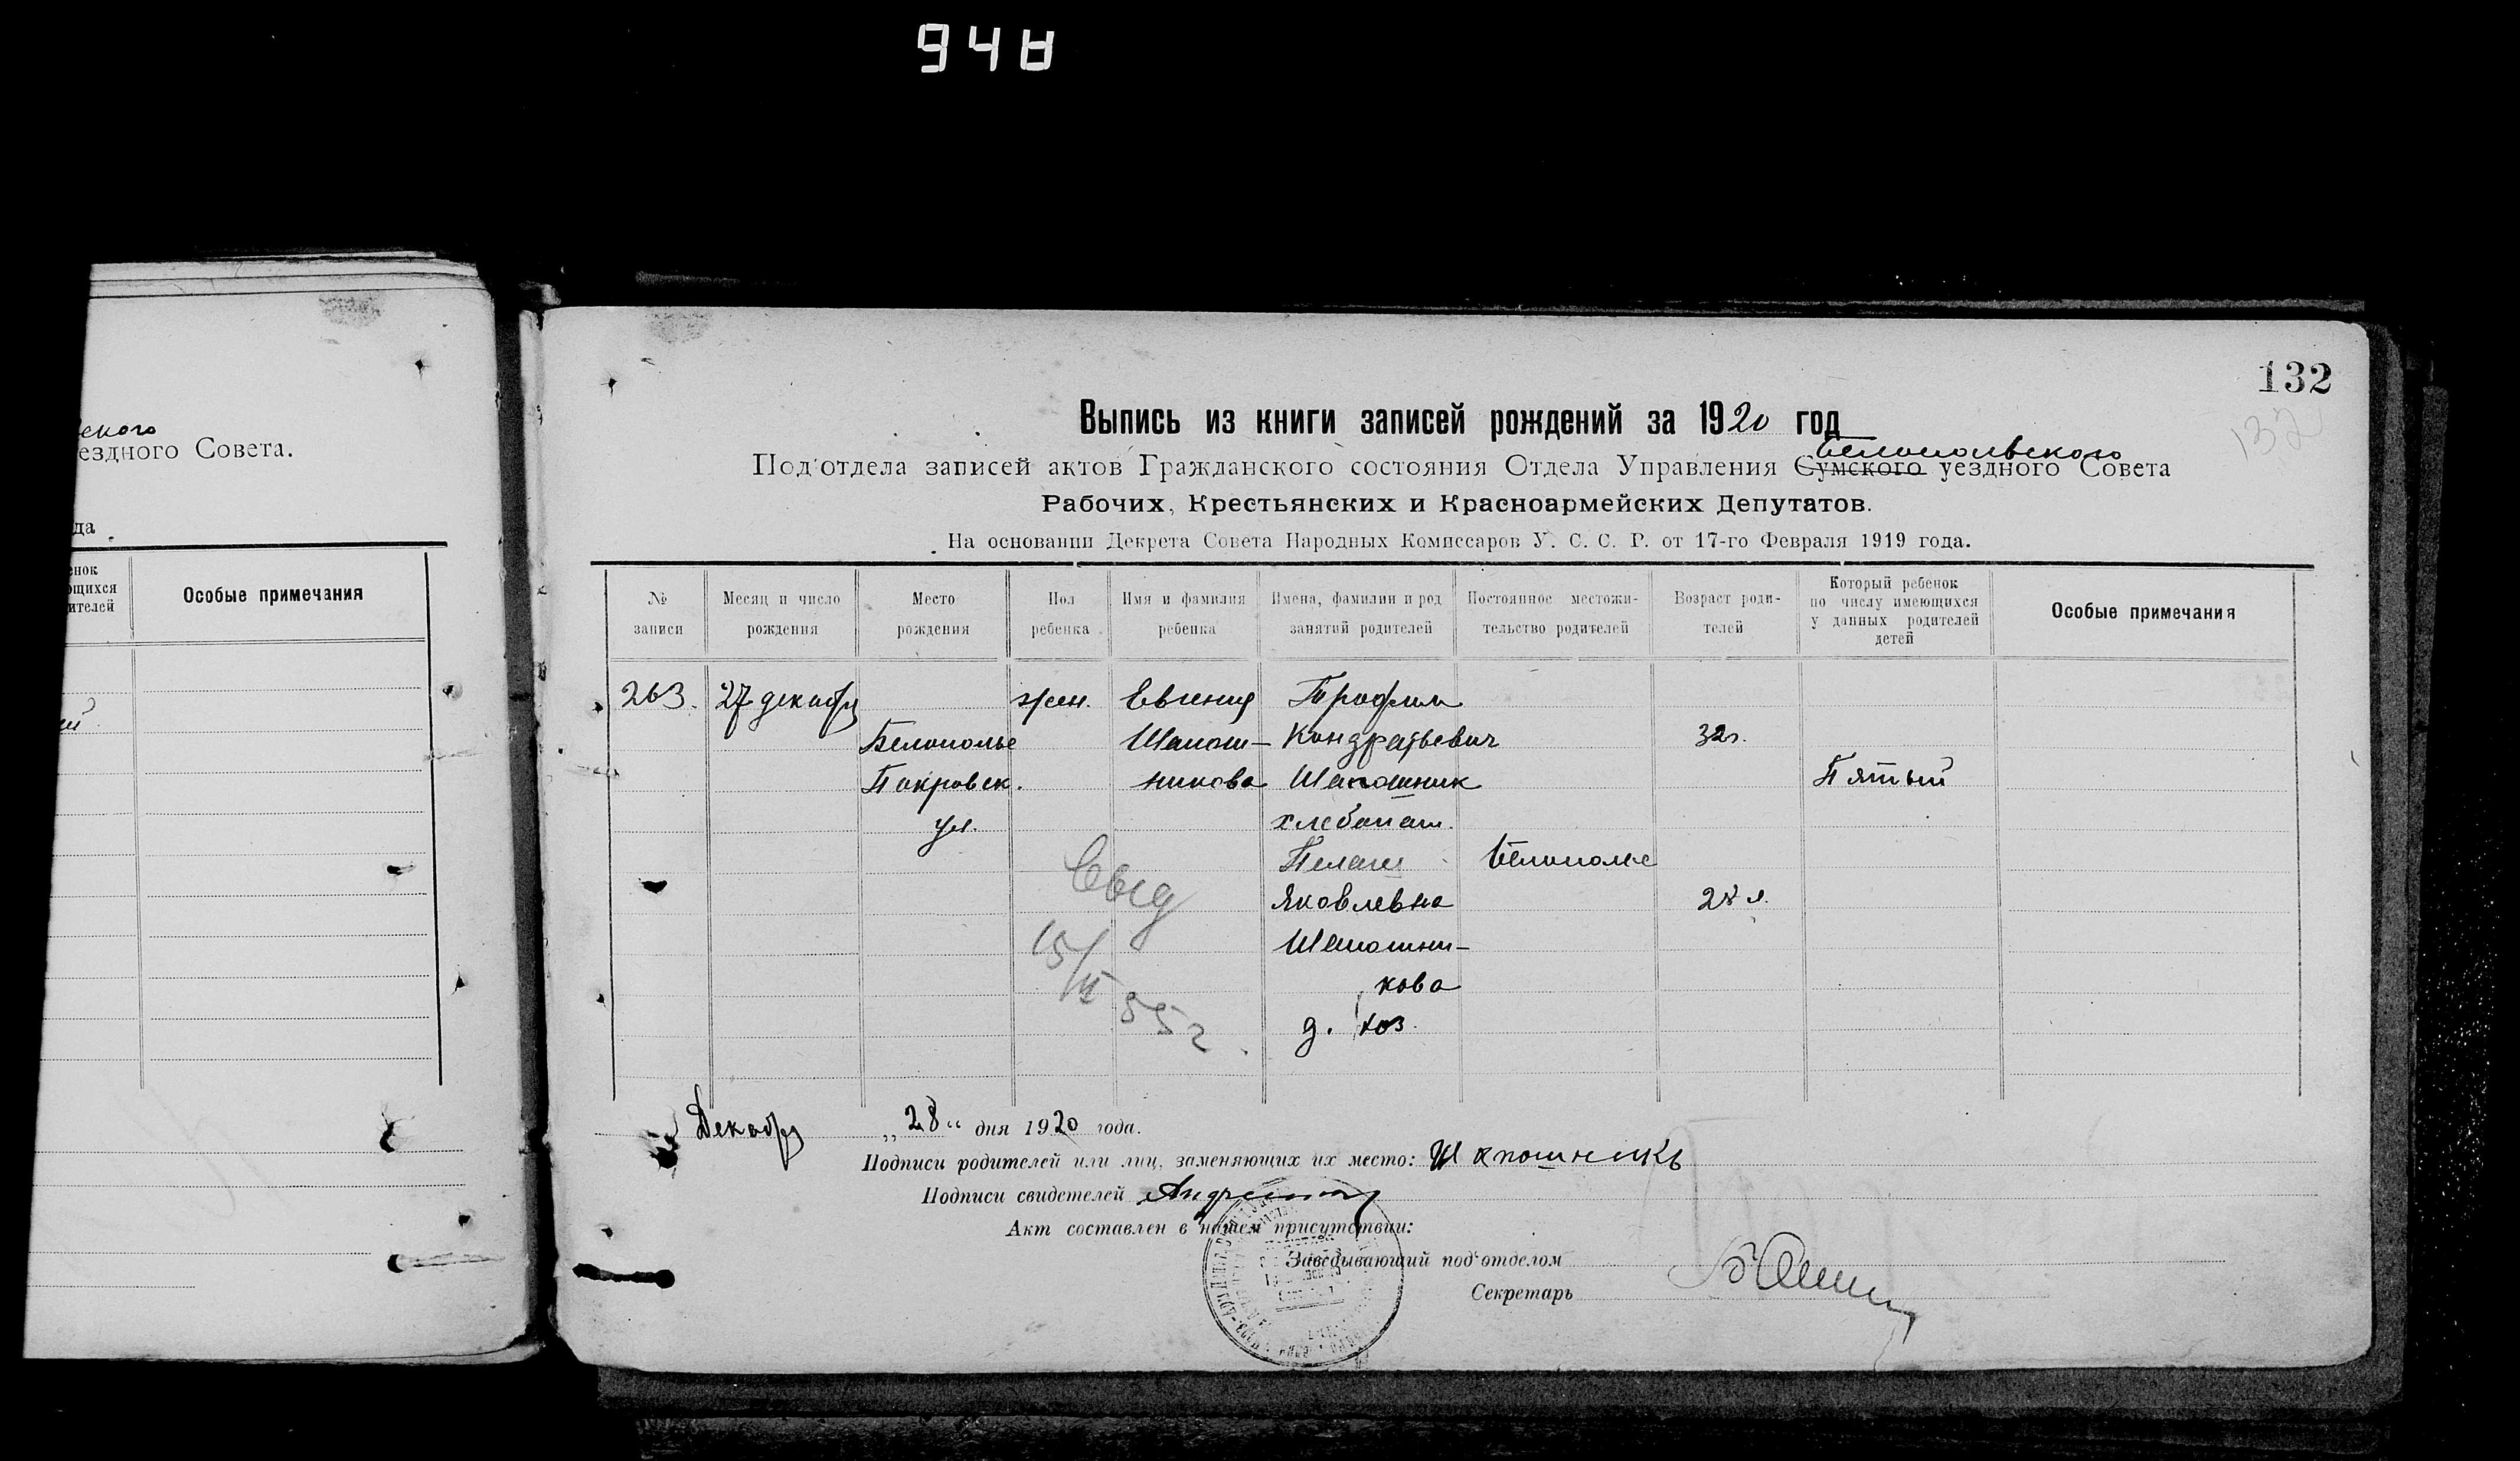 94A
132
132
Выпись из книги записей рождений за 1920 год
Белопольского
Под'отдела записей актов Гражданского состояния Отдела Управления Сумского уездного Совета
Рабочих, Крестьянских и Красноармейских Депутатов.
На основании Декрета Совета Народных Комиссаров У. С. С. Р. от 17-го Февраля 1919 года.
№ записи
Месяц и число рождения
Место рождения
Пол ребенка
Имя и фамилия ребенка
Имена, фамилии и род занятий родителей
Постоянное местожительство родителей
Возраст родителей
Который ребенок по числу имеющихся у данных родителей детей
Особые примечания
263. 27 декабря жен. Евгения Трофим
Белополье Шапош- Кондратьевич 32г.
Покровск. никова Шапошник Пятый
ул. хлебопаш.
Пелагия Белополье
Яковлевна 28 л.
Шапошни-
кова
д. хоз.
Свид
15/
55 г.
Декабря „28“ дня 1920 года.
Подписи родителей или лиц, заменяющих их место: Шапошникъ
Подписи свидетелей
Акт составлен в нашем присутствии:
Заведывающий под'отделом
Секретарь
ского
ездного Совета.
да
енок
ющихся
ителей
Особые примечания
ый